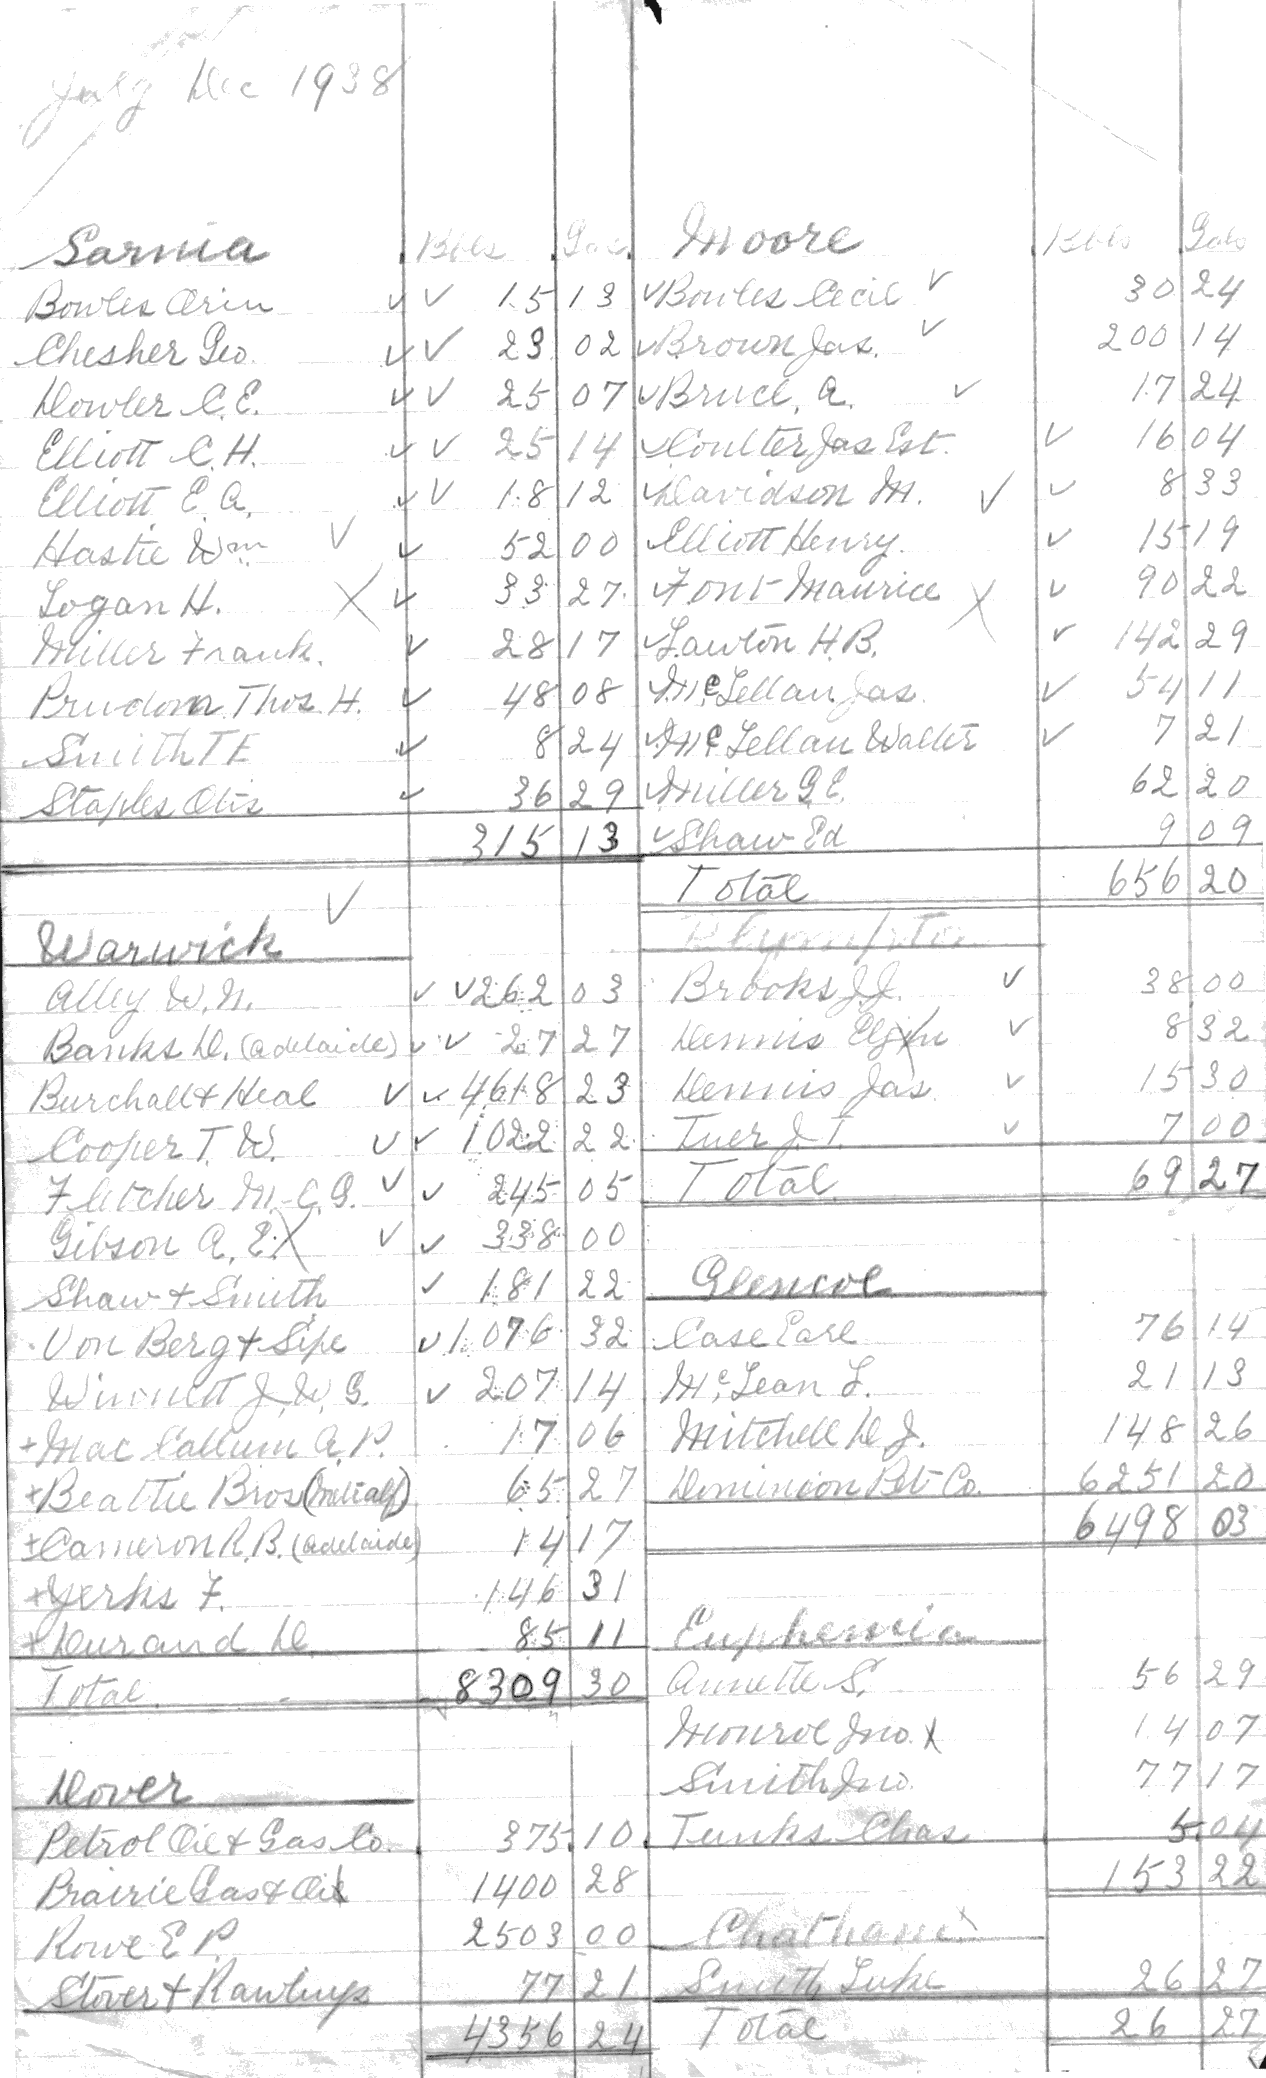 July Dec 1938
Sarnia Bbls Gals
Bowles Orin ✓ ✓ 15 13
Chesher Geo. ✓ ✓ 23 02
Dowler C. E. ✓ ✓ 25 07
Elliott C. H. ✓ ✓ 25 14
Elliott E. A. ✓ ✓ 18 12
Hastie Wm. ✓ ✓ 52 00
Logan H. X ✓ 33 27
Miller Frank. ✓ 28 17
Prudom Thos. H. ✓ 48 08
Smith T E ✓ 8 24
Staples Otis ✓ 36 29
315 13
Warwick ✓
Alley W. N. ✓ ✓ 262 03
Banks D. (Adelaide) ✓ ✓ 27 27
Burchall + Heal ✓ ✓ 4618 23
Cooper T. W. ✓ ✓ 1022 22
Fletcher M. C. G. ✓ ✓ 245 05
Gibson A. E. X ✓ ✓ 338 00
Shaw + Smith ✓ 181 22
Von Berg + Sipe ✓ 1076 32
Winnett J. W. G. ✓ 207 14
+ Mac Callum A. P. 17 06
+ Beattie Bros (Metcalf) 65 27
+ Cameron R. B. (Adelaide) 14 17
+ Yerks F. 146 31
+ Durand D. 85 11
Total 8309 30
Dover
Petrol Oil + Gas Co. 375 10
Prairie Gas + Oil 1400 28
Rowe E P. 2503 00
Stover + Rawlings 77 21
4356 24
Moore Bbls Gals
✓ Bowles Cecil ✓ 30 24
✓ Brown Jas. ✓ 200 14
✓ Bruce, A. ✓ 17 24
✓ Coulter Jas Est. ✓ 16 04
✓ Davidson M. ✓ ✓ 8 33
✓ Elliott Henry ✓ 15 19
✓ Font Maurice X ✓ 90 22
✓ Lawton H. B. ✓ 142 29
✓ McLellan Jas. ✓ 54 11
✓ McLellan Walter ✓ 7 21
✓ Miller G. E. 62 20
✓ Shaw Ed 9 09
Total 656 20
Plympton
Brooks J. J. ✓ 38 00
Dennis Elgin ✓ 8 32
Dennis Jas ✓ 15 30
Tuer J. T. ✓ 7 00
Total 69 27
Glencoe
Case Earl 76 14
McLean L. 21 13
Mitchell D. J. 148 26
Dominion Pet Co. 6251 20
6498 03
Euphemia
Annette S. 56 29
Monroe Jno. X 14 07
Smith Jno. 77 17
Tunks Chas 5 04
153 22
Chatham X
Smith Luke 26 27
Total 26 27